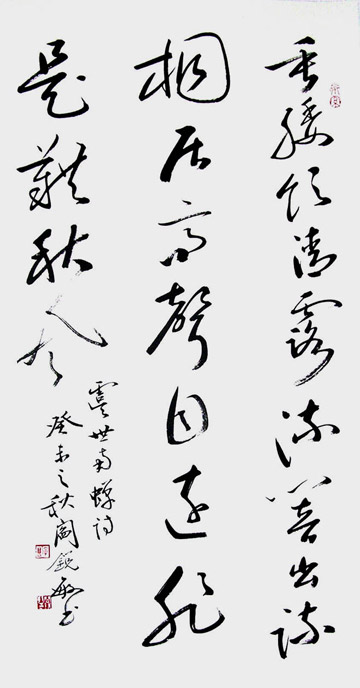 垂緌飲清露流響出疏
桐居高聲自遠非
是藉秋風
虞世南蟬詩
癸未之秋閻銳敏书